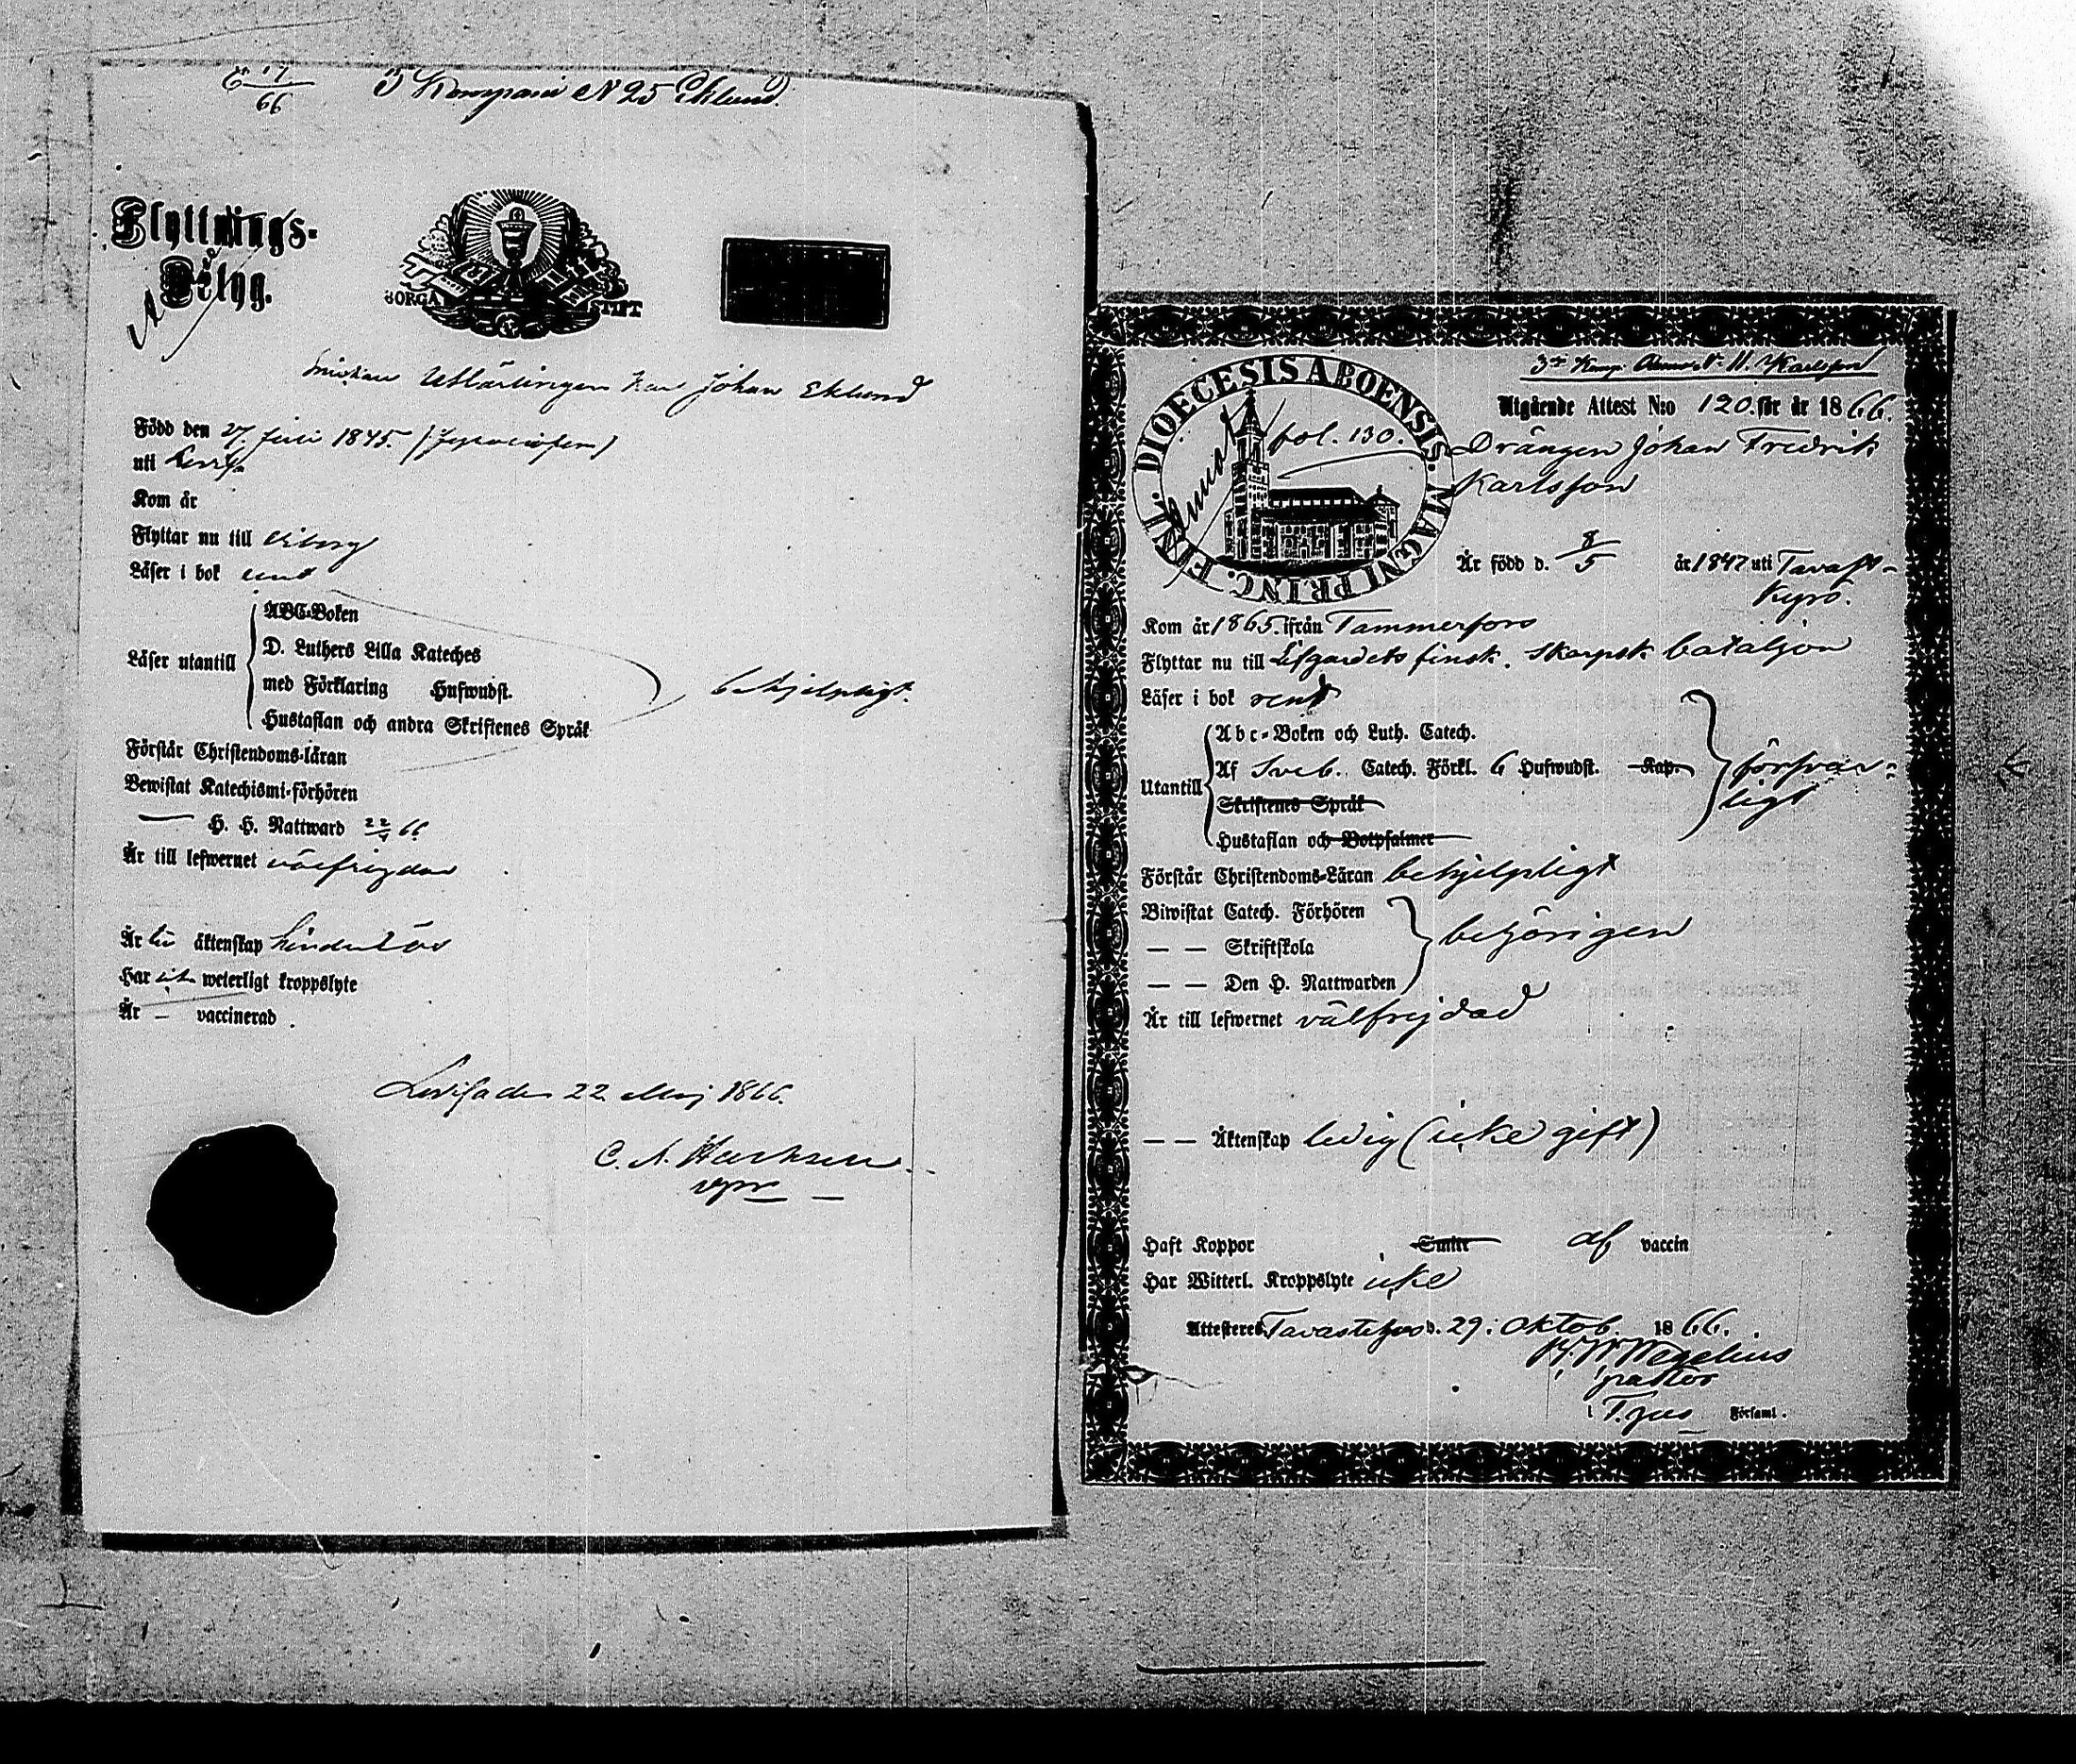 17
66
3 Kompani N 25 Eklund.
Flyttnings-
Betyg.
BORGÅ STIFT
Utlärlingen Karl Johan Eklund
Född den 27 Juni 1845.
uti
Kom år
Flyttar nu till Viborg
Läser i bok rent
Läser utantill
ABC-Boken
D. Luthers Lilla Kateches
med Förklaring Hufwudst.
Hustaflan och andra Skriftenes Språk
behjelpligt.
Förstår Christendoms-läran
Bewistat Katechismi-förhören
— H. H. Nattward 22/4 66
Är till lefwernet välfrejdad
Är till äktenskap hinderlös
Har icke weterligt kroppslyte
Är — vaccinerad
Lovisa den 22 Maj 1866.
C. A.
vpr
3de Komp. N. 11. Karlsson
DIOECESIS ABOENSIS. MAGNI PRINC. FINL.
fol. 130.
Utgående Attest N:o 120. för år 1866.
Drängen Johan Fredrik
Karlsson
Är född d. 8/5 år 1847 uti Tavast-
Kyro.
Kom år 1865. ifrån Tammerfors
Flyttar nu till Lifgardets finsk. Skarpsk. bataljon
Läser i bok rent
Utantill
Abc-Boken och Luth. Catech.
Af Sveb. Catech. Förkl. 6 Hufwudst. Kap.
Skriftenes Språk
Hustaflan och Botpsalmer
försvar-
ligt
Förstår Christendoms-Läran behjelpligt
Biwistat Catech. Förhören
— — Skriftskola
— — Den H. Nattwarden
behörigen
Är till lefwernet välfrejdad
— — Äktenskap ledig (icke gift)
Haft Koppor Smitt af vaccin
Har Witterl. Kroppslyte icke
Attesteres Tavastehus d. 29. Oktob. 1866.
Wegelius
pastor
i T.hus Församl.